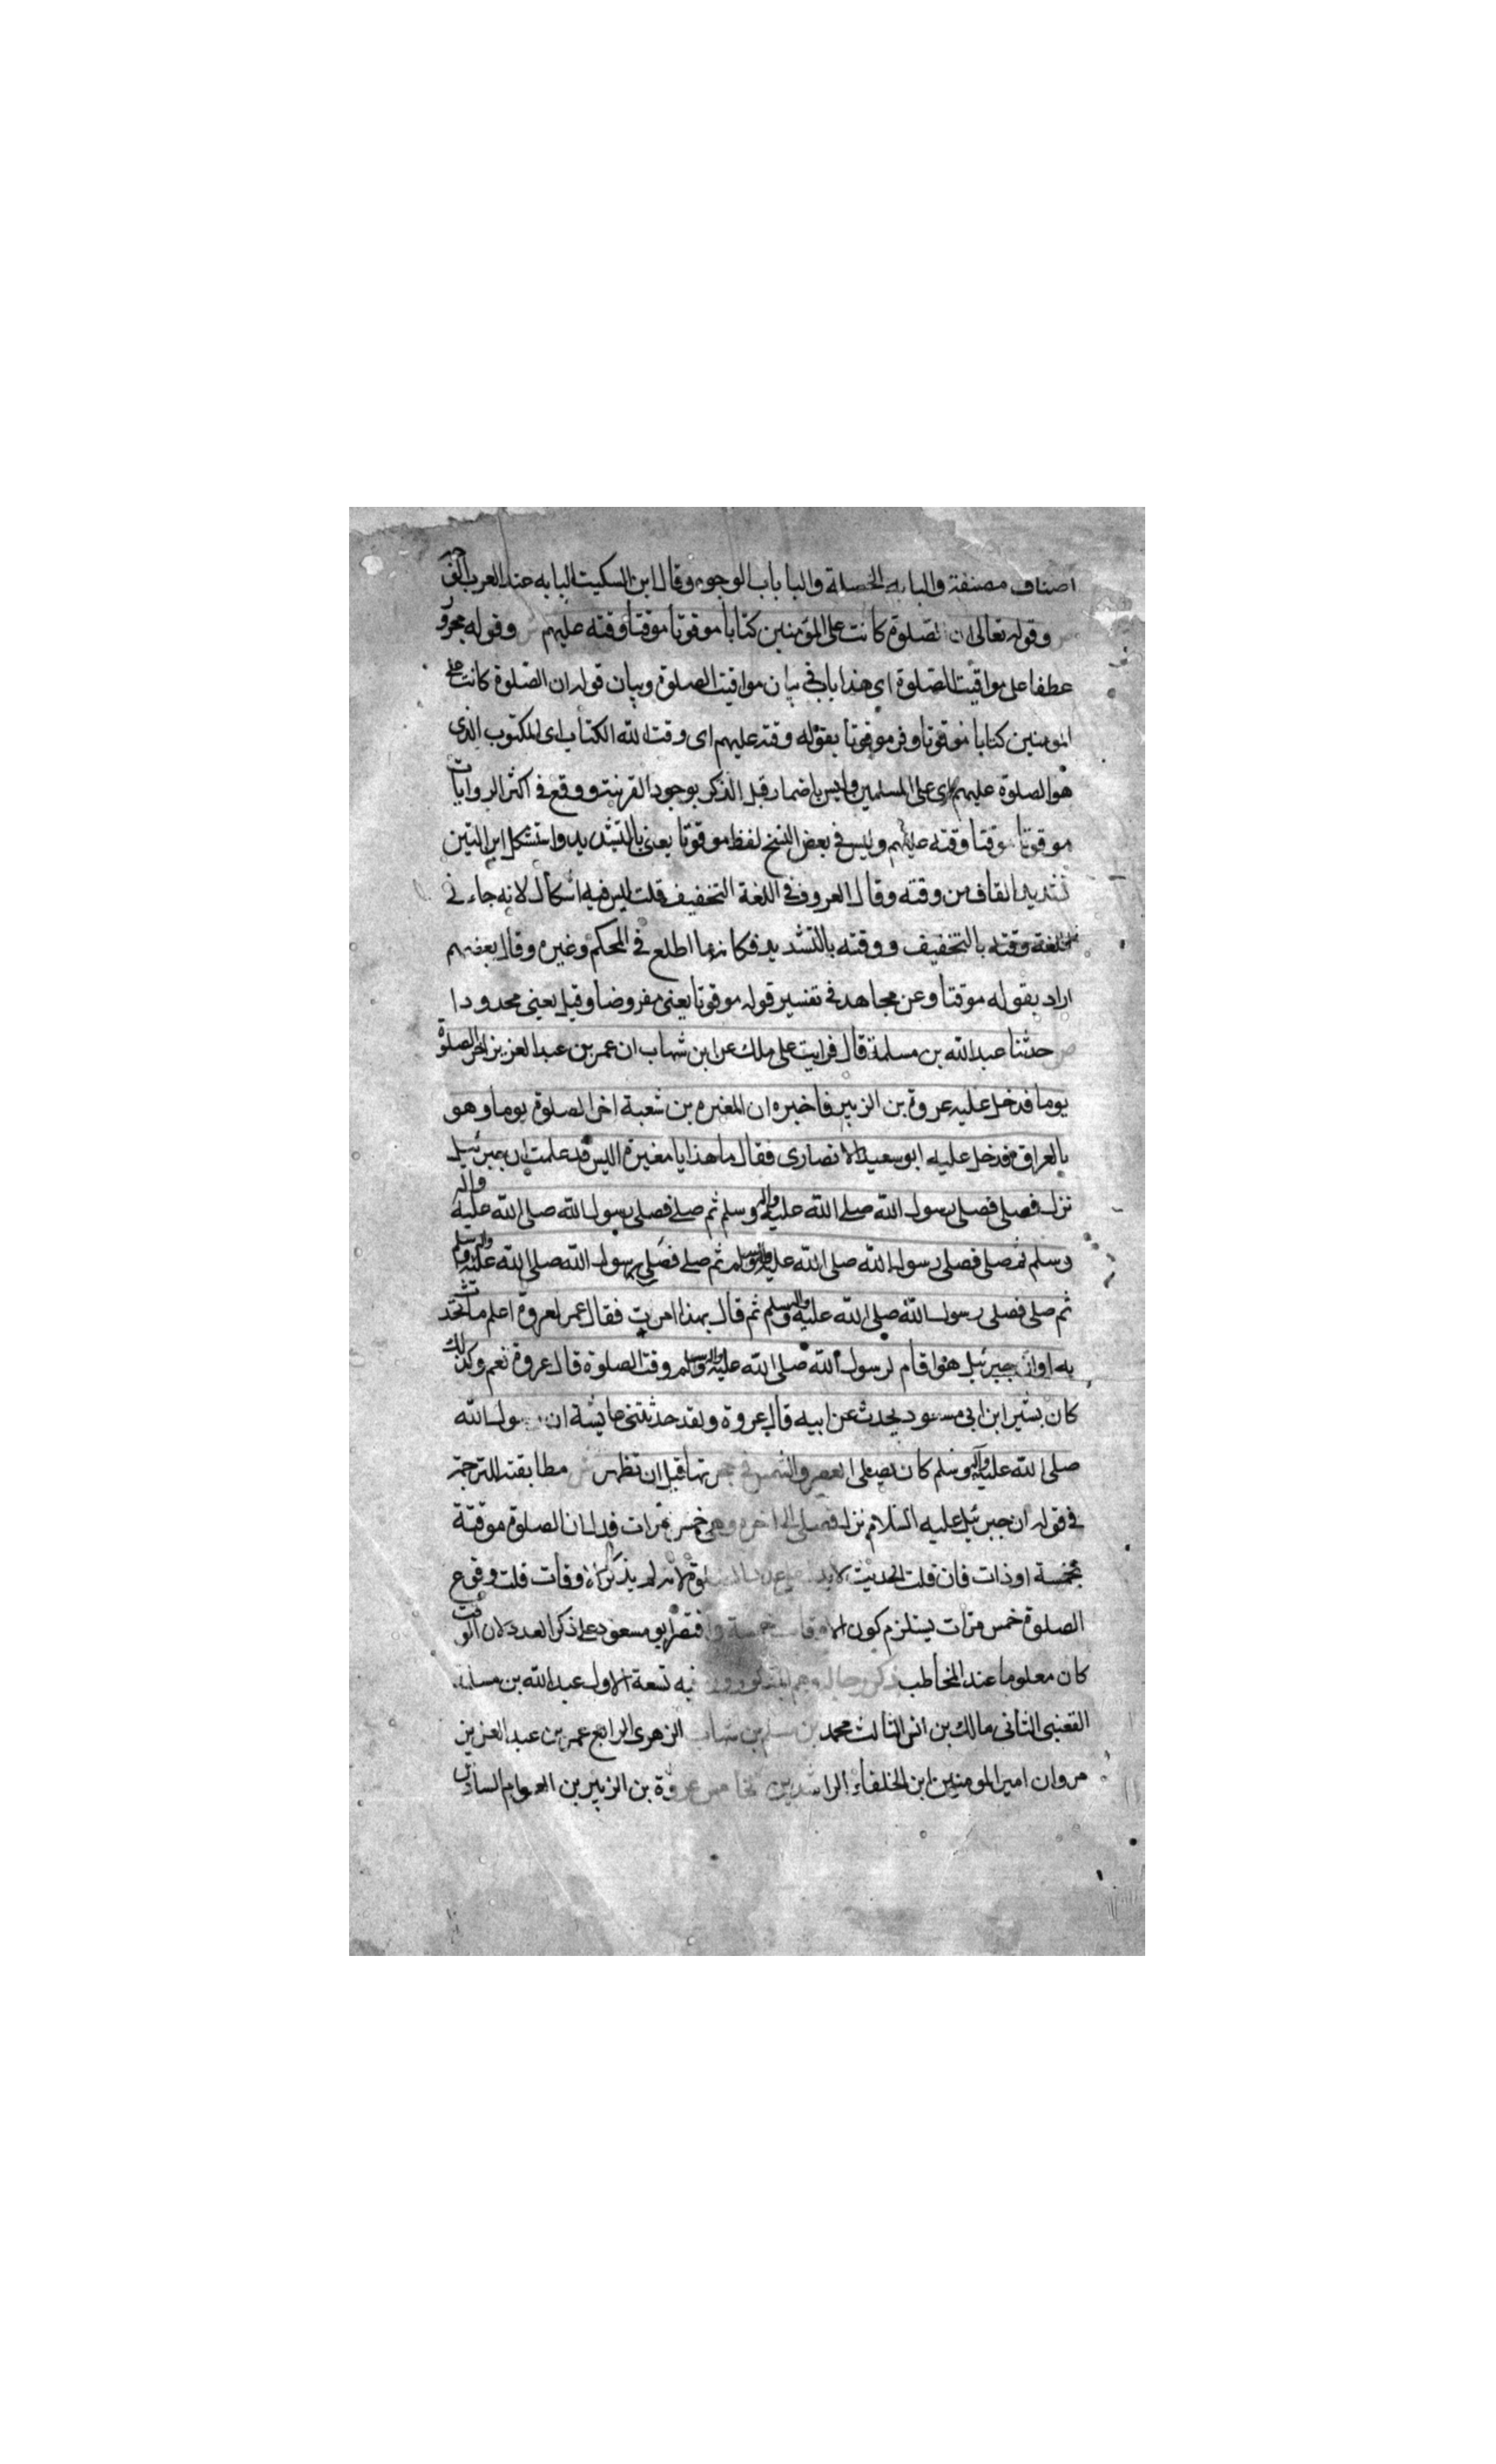 اصناف مصنفة والبابه الخصلة والبابات الوجوه وقال ابن السكيت البابه عند العرب الوجه
ص وقوله تعالى ان الصلوة كانت على المؤمنين كتابا موقوتا موقتا وقته عليهم ش وقوله مجرور
عطفا على مواقيت الصلوة اى هذا باب فى بيان مواقيت الصلوة وبيان قوله ان الصلوة كانت على
المومنين كتابا موقوتا وفر موقوتا بقوله وقته عليهم اى وقت الله الكتاب اى المكتوب الذى
هو الصلوة عليهم اى على المسلمين وليس باضمار قبل الذكر بوجود القرينة ووقع فى اكثر الروايات
موقوتا موقتا وقته عليهم وليس فى بعض النسخ لفظ موقوتا يعنى بالتشديد واستشكل ابن التين
تشديد القاف من وقته وقال المعروف فى اللغة التخفيف قلت ليس فيه اشكال لانه جاء فى
اللغة وقته بالتخفيف ووقته بالتشديد فكانه ما اطلع فى المحكم وغيره وقال بعضهم
اراد بقوله موقتا وعن مجاهد فى تفسير قوله موقوتا يعنى مفروضا وقيل يعنى محدودا
ص حدثنا عبد الله بن مسلمة قال قرايت على ملك عن ابن شهاب ان عمر بن عبد العزيز اخر الصلوة
يوما فدخل عليه عروة بن الزبير فاخبره ان المغيره بن شعبة اخر الصلوة يوما وهو
بالعراق فدخل عليه ابو سعيد الانصارى فقال ما هذا يا مغيرة اليس قد علمت ان جبرئيل
نزل فصلى فصلى رسول الله صلى الله عليه واله وسلم ثم صلى فصلى رسول الله صلى الله عليه واله
وسلم ثم صلى فصلى رسول الله صلى الله عليه واله وسلم ثم صلى فصلى رسول الله صلى الله عليه واله وسلم
ثم صلى فصلى رسول الله صلى الله عليه واله وسلم ثم قال بهذا امرت فقال عمر لعروة اعلم ما تحدث
به اوان جبرئيل هو اقام لرسول الله صلى الله عليه واله وسلم وقت الصلوة قال عروة نعم وكذلك
كان بشير ابن ابى مسعود يحدث عن ابيه قال عروة ولقد حدثتنى عايشة ان رسول الله
صلى الله عليه واله وسلم كان يصلى العصر والشمس فى حجرتها قبل ان تظهر ش مطابقته للترجمة
فى قوله ان جبرئيل عليه السلام نزل فصلى الى اخره وهى خمس مرات فدل ان الصلوة موقتة
بخمسة اوقات فان قلت الحديث لا يدل لانه لم يذكر الاوقات قلت وقوع
الصلوة خمس مرات يستلزم كون الاوقات خمسة واقتصر ابو مسعود على ذكر العدد لان الوقت
كان معلوما عند المخاطب ذكر رجاله وهم المذكورون فيه تسعة الاول عبد الله بن مسلمة
القعنبى الثانى مالك بن انس الثالث محمد بن مسلم بن شهاب الزهرى الرابع عمر بن عبد العزيز
مروان امير المومنين ابن الخلفاء الراشدين الخامس عروة بن الزبير بن العوام السادس